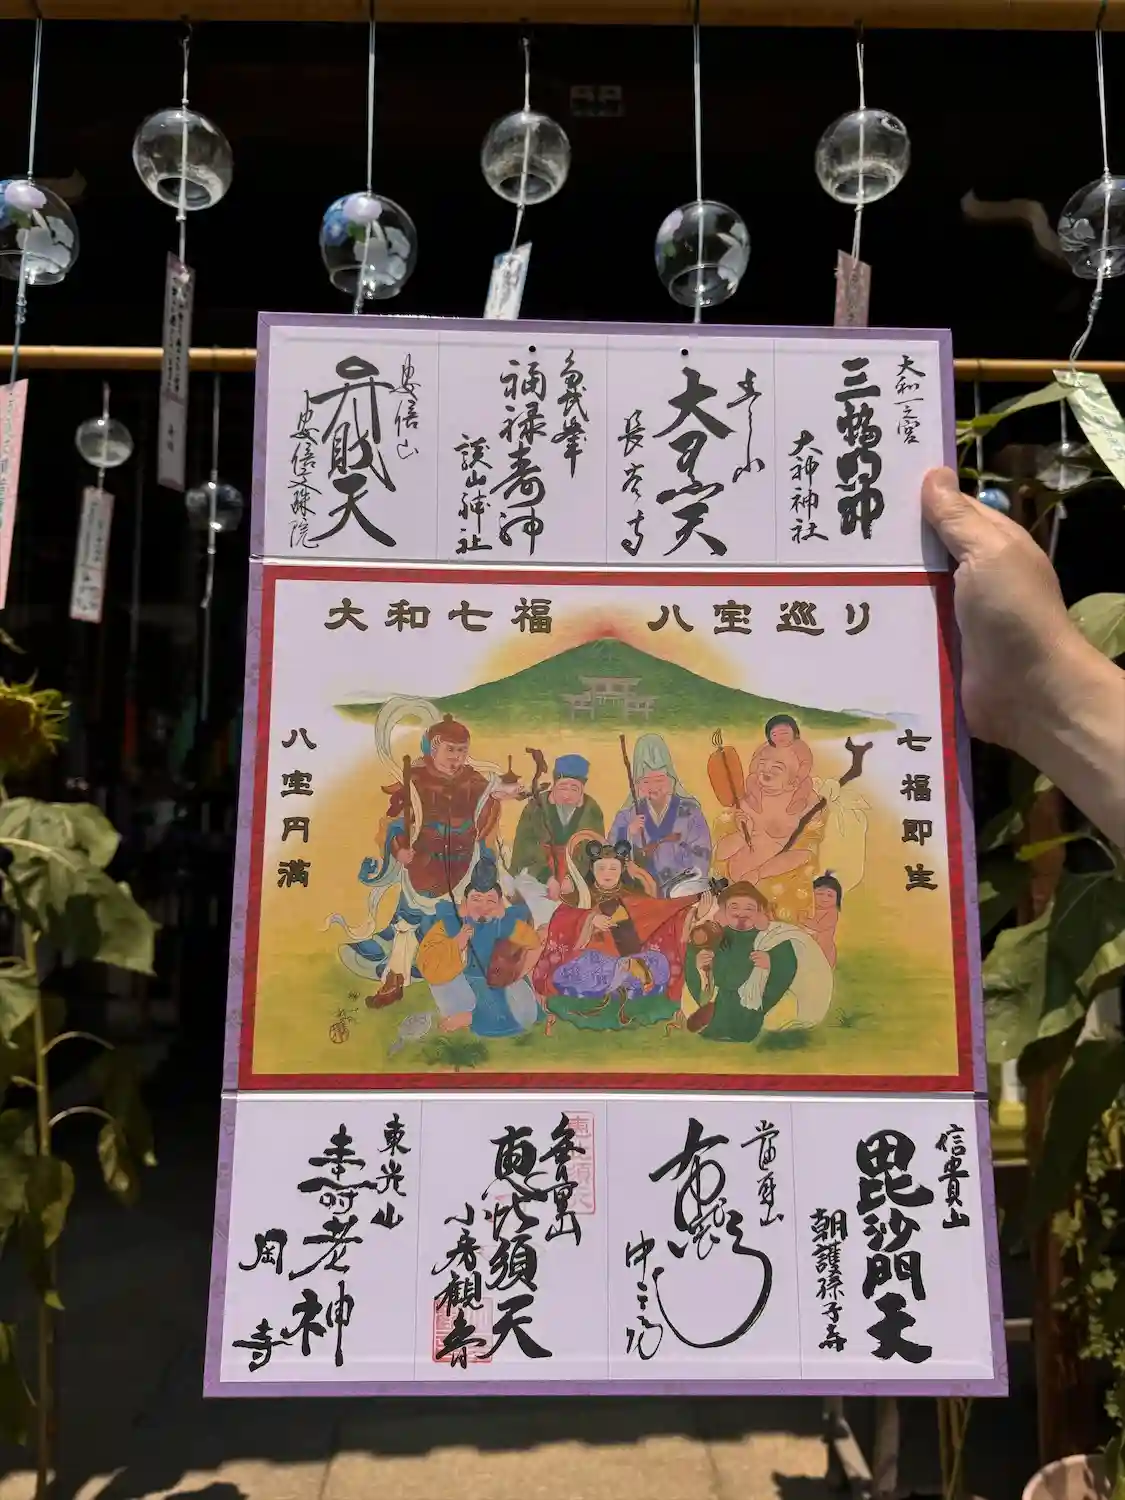 大和一之宮
三輪明神
大神神社
大黒天
長谷寺
多武峯
福禄寿神
談山神社
安倍山
弁財天
安倍文殊院
大和七福 八宝巡り
七福即生
八宝円満
信貴山
毘沙門天
朝護孫子寺
當麻山
布袋
中之坊
恵比須天
小房観音
東光山
寿老神
岡寺